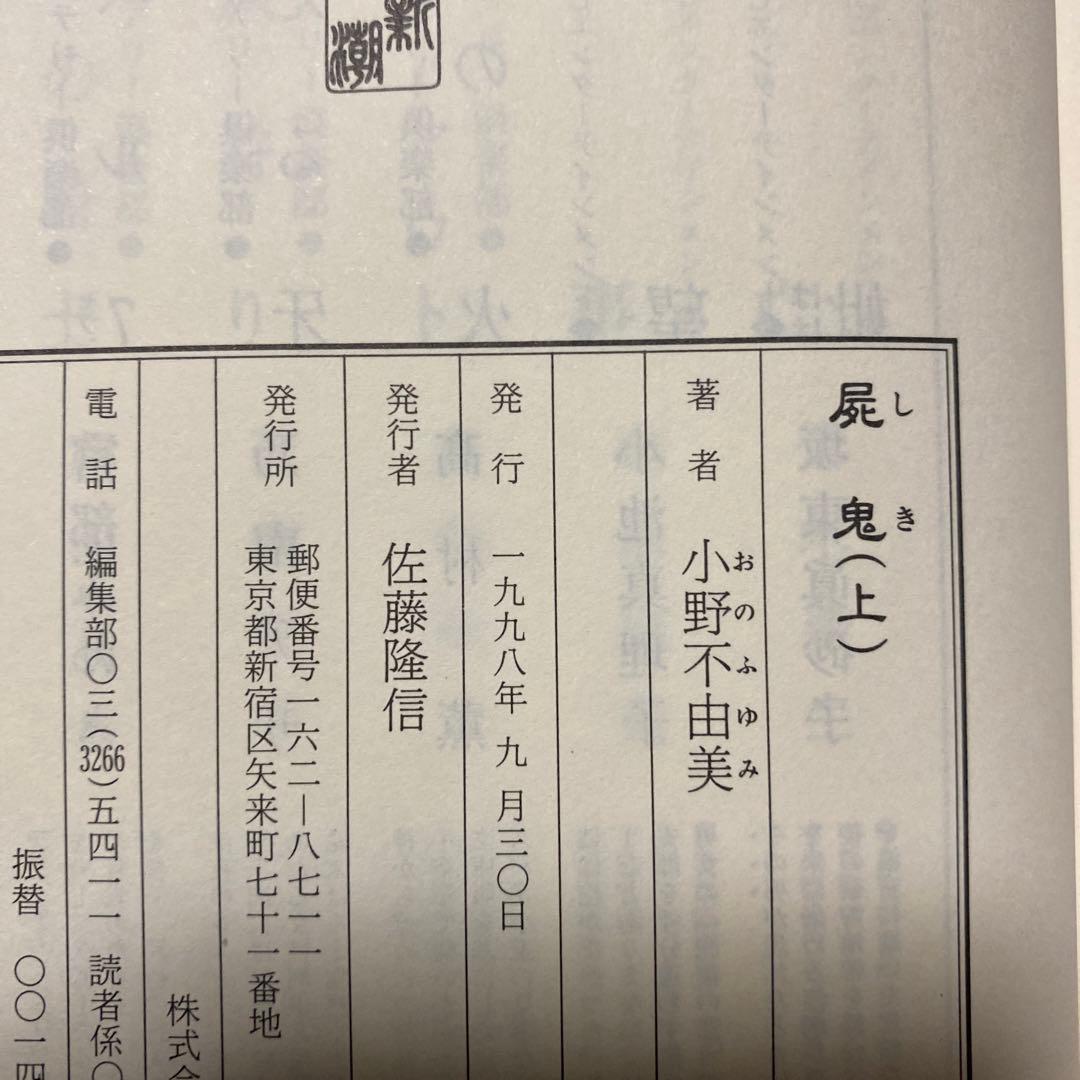 新潮
屍鬼(上)
しき
著者 小野不由美
おのふゆみ
発行 一九九八年九月三〇日
発行者 佐藤隆信
発行所 郵便番号一六二―八七一一
東京都新宿区矢来町七十一番地
株式会
電話 編集部〇三(3266)五四一一 読者係〇
振替 〇〇一四